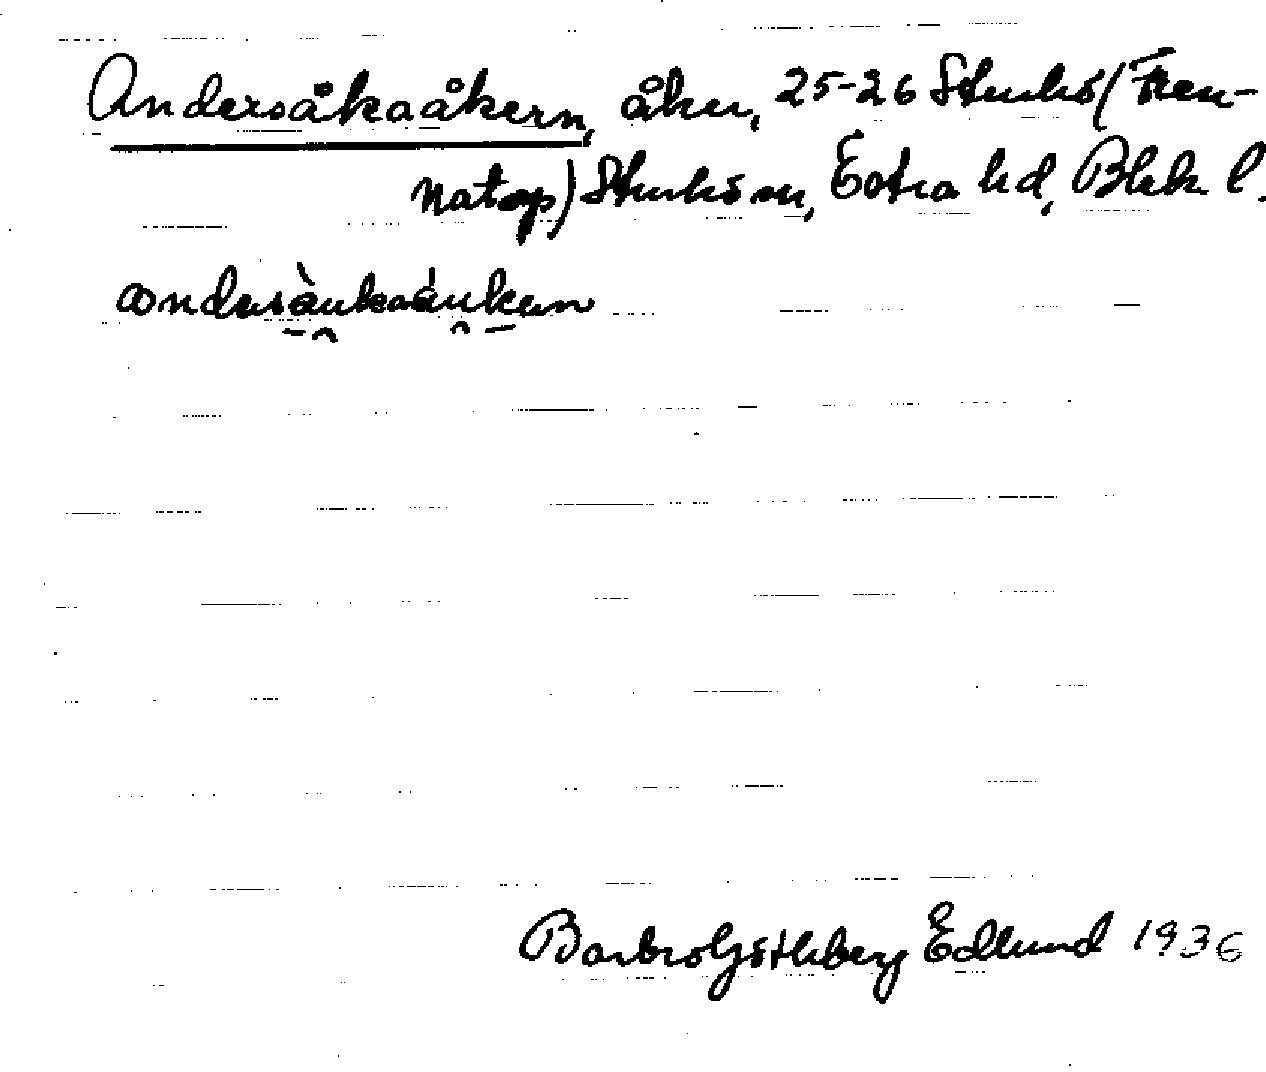 Andersåkaåkern, åker, 25-26 Sturkö (Tren-
natorp) Sturkö sn, Östra hd, Blek l.
andersàukaáukan
Barbro Göthberg Edlund 1936